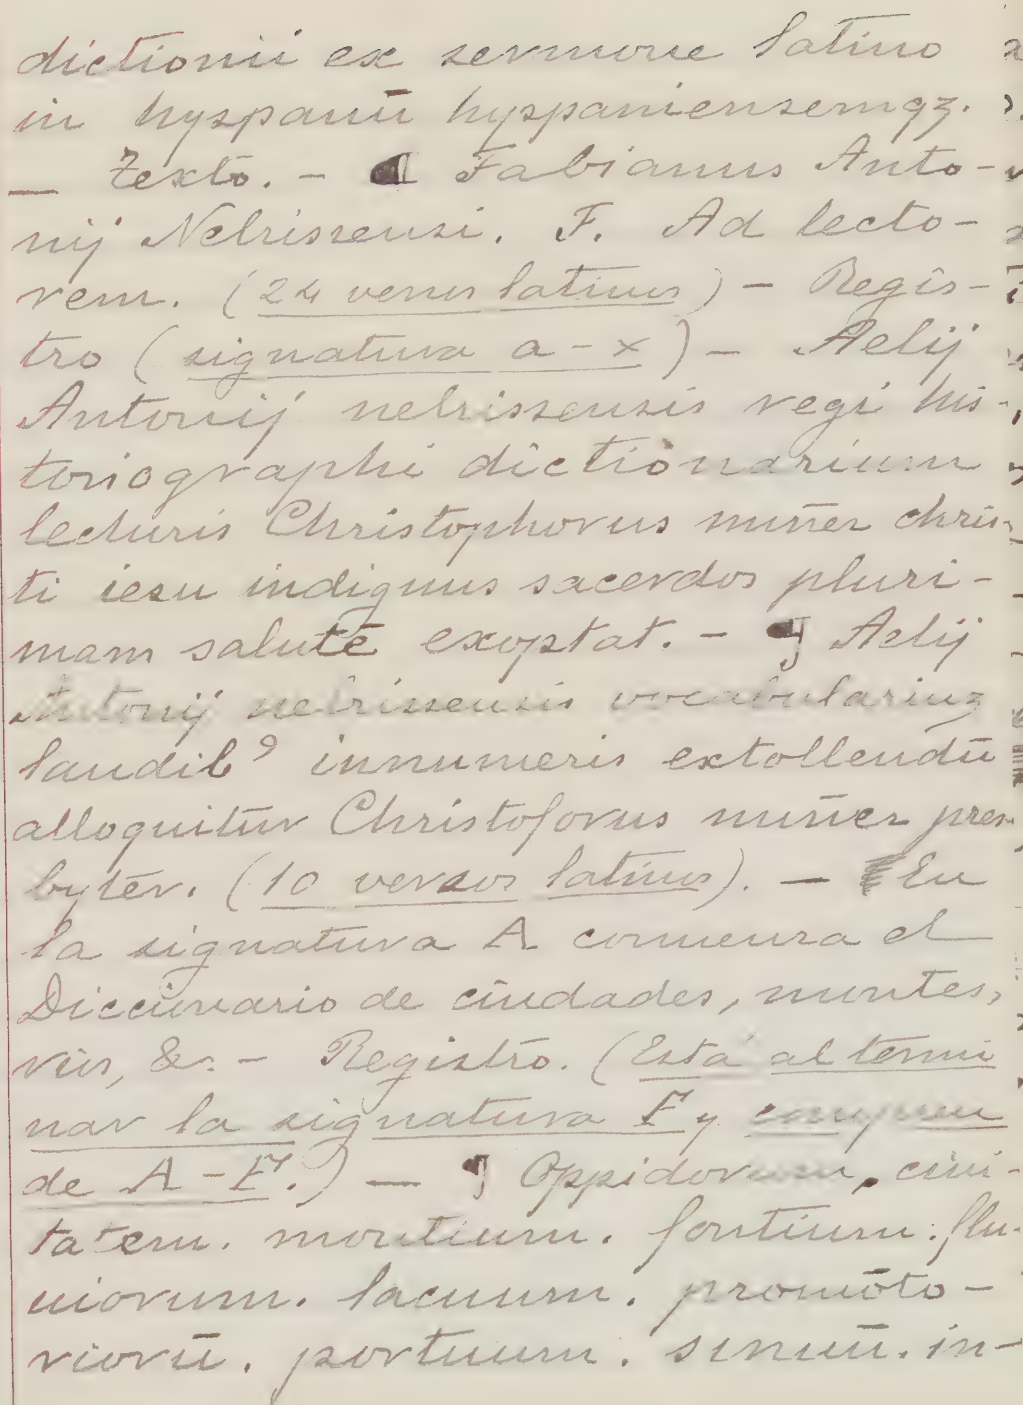 dictionū ex sermone latino
in hyspanū hyspaniensemqz.
— Texto. - ¶ Fabianus Anto-
nij Nebrissensi. F. Ad lecto-
rem. (24 versos latinos) - Regis-
tro (signatura a - x) - Aelij
Antonij nebrissensis regi his-
toriographi dictionarium
lecturis Christophorus nuñez chris-
ti iesu indignus sacerdos pluri-
mam salutē exoptat. - ¶ Aelij
Antonij nebrissensis vocabulariuz
laudibꝰ innumeris extollendū
alloquitur Christoforus nuñez pres-
byter. (10 versos latinos). — En
la signatura A comienza el
Diccionario de ciudades, montes,
rios, &. - Registro. (Está al termi
nar la signatura F y compren
de A - F.) — ¶ Oppidorum, ciui-
tatem. montium. fontium. flu-
uiorum. lacuum. promōto-
riorū. portuum. sinuū. in-